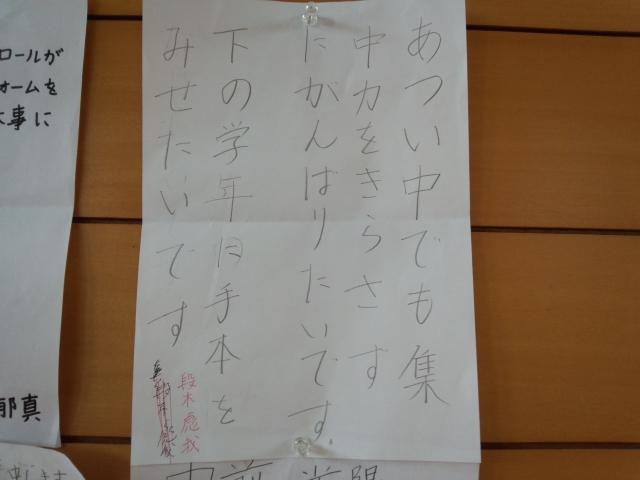 あつい中でも集
中力をきらさす
にがんばりたいです。
下の学年に手本を
みせたいです
段木應我
ロールが
ォームを
事に
郁真